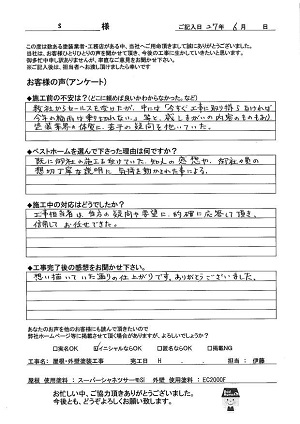 S 様 ご記入日 27年 6月 日
この度は数ある塗装業者・工務店がある中、当社へご用命頂きまして誠にありがとうございました。
当社は、お客様ひとりひとりの声を聞かせて頂き、今後の工事に生かしていきたいと思います。
御多忙中申し訳ありませんが、率直なご意見をお聞かせ下さい。
※ご記入後は、担当者へお渡し頂けましたら幸いです
お客様の声(アンケート)
◆施工前の不安は?(どこに頼めば良いかわからなかった、など)
数社からセールスを受けたが、中には「今すぐ工事に取り掛らなければ
今年の梅雨は乗り切れない。」等と、
塗装業界の体質に、若干の疑問を抱いていた。
◆ベストホームを選んで下さった理由は何ですか?
既に御社の施工を受けていた、知人の感想や、御社の
丁寧な説明に、気持を動かされた事による。
◆施工中の対応はどうでしたか?
工事担当者は、当方の疑問や要望に、的確に応答して頂き、
信頼してお任せできた。
◆工事完了後の感想をお聞かせ下さい。
想い描いていた通りの仕上がりです。ありがとうございました。
あなたのお声を他のお客様にも読んで頂きたいので
弊社ホームページ等に掲載させて頂く場合がありますが、よろしいでしょうか?
□実名OK ☑イニシャルならOK □匿名ならOK □掲載NG
工事名: 屋根・外壁塗装工事 完工日 H . . 担当: 伊藤
屋根 使用塗料: スーパーシャネツサーモSi 外壁 使用塗料: EC2000F
お忙しい中、ご協力頂きありがとうございました。
今後とも、どうぞよろしくお願い致します。